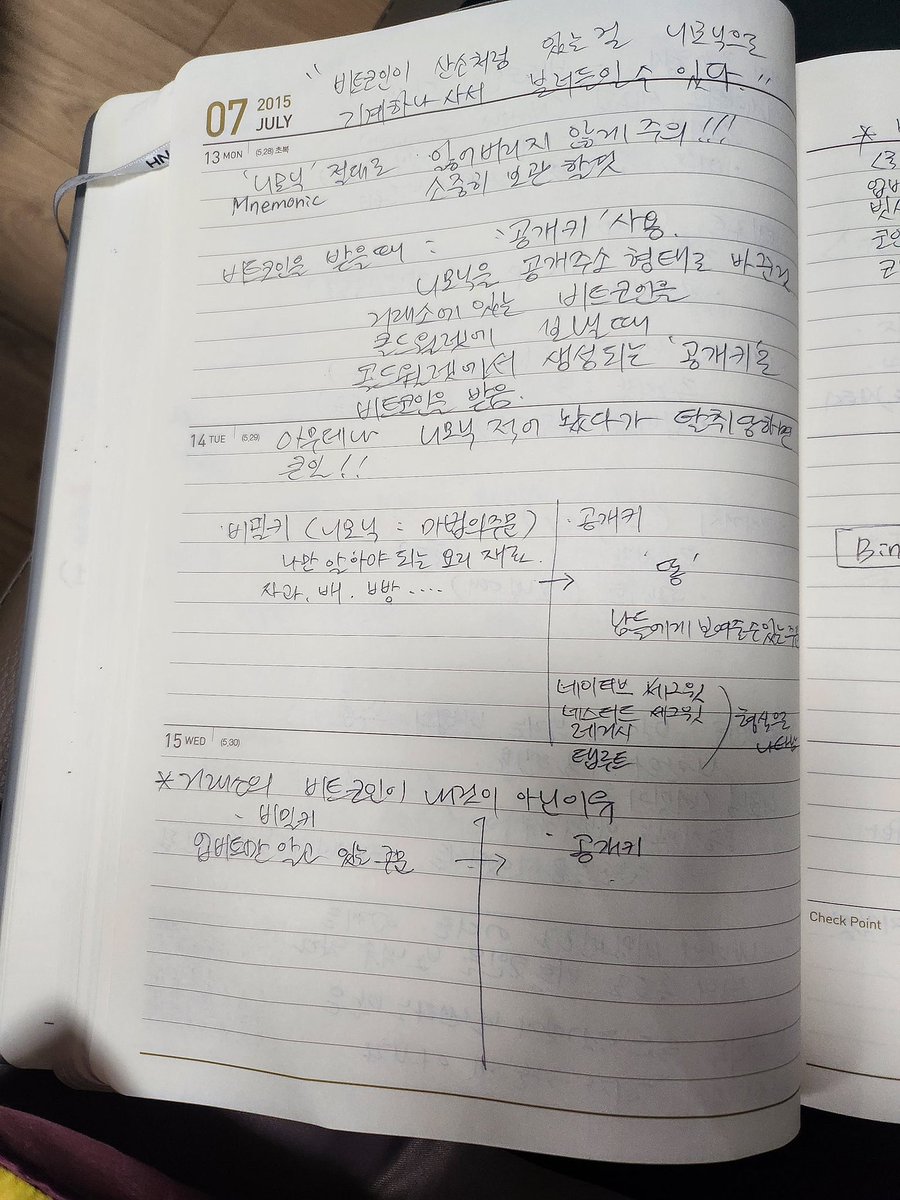 "비트코인이 산소처럼 있는걸 니모닉으로
기계하나 사서 불러들일수 있다."
07 2015 JULY
13 MON (5.28) 초복
'니모닉' 절대로 잃어버리지 않게 주의!!!
Mnemonic 소중히 보관 할것
비트코인을 받을때 : '공개키' 사용.
니모닉을 공개주소 형태로 바꾼뒤
거래소에 있는 비트코인을
콜드월렛에 보낼때
콜드월렛에서 생성되는 '공개키'로
비트코인을 받음.
14 TUE (5.29)
아무데나 니모닉 적어 놨다가 탈취당하면
큰일!!
· 비밀키 (니모닉 = 마법의주문) · 공개키
나만 알아야 되는 요리 재료. → '똥'
사과. 배. 빵 ....
남들에게 보여줄수있는
네이티브 세그윗
네스티드 세그윗
레거시
탭루트
형식을
15 WED (5.30)
* 거래소의 비트코인이 내것이 아닌이유
· 비밀키 · 공개키
업비트만 알고 있는 주문 →
Check Point